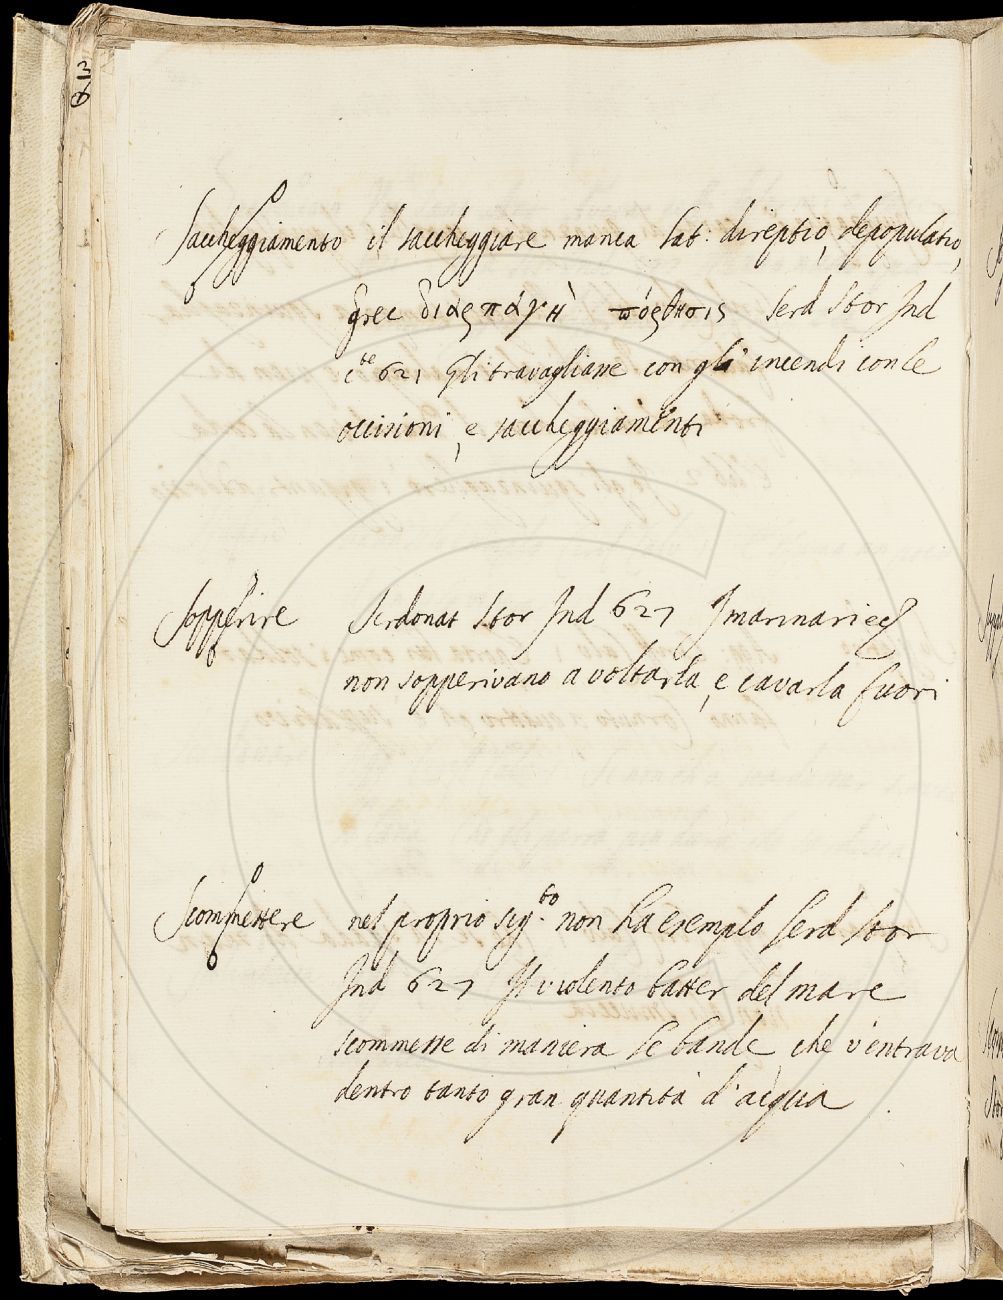 Saccheggiamento il saccheggiare manca Lat: direptio, depopulatio,
grec διαρπαγὴ πόρθησις Serd Stor Ind
cte 621 Gli travagliasse con gli incendi con le
occisioni, e saccheggiamenti
Sopperire Serdonat Stor Ind 627 I marinari ec
non sopperivano a voltarla, e cavarla fuori
Scommettere nel proprio sig.to non ha esemplo Serd Stor
Ind 627 Il violento batter del mare
scommesse di maniera le bande che v'entrava
dentro tanto gran quantità d'acqua